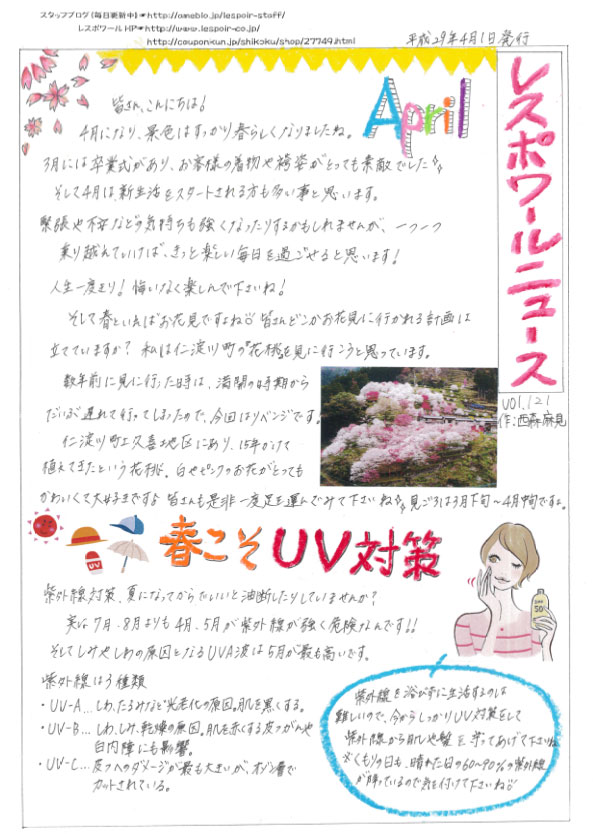 スタッフブログ(毎日更新中)☛http://ameblo.jp/lespoir-staff/
レスポワールHP☛http://www.lespoir-co.jp/
http://couponkun.jp/shikoku/shop/27749.html
平成29年4月1日発行
レスポワールニュース
vol.121
作:西森麻見
April
皆さん、こんにちは!
4月になり、景色はすっかり春らしくなりましたね。
3月には卒業式があり、お客様の着物や袴姿がとっても素敵でした
そして4月は新生活をスタートされる方も多い事と思います。
緊張や不安などの気持ちも強くなったりするかもしれませんが、一つ一つ
乗り越えていけば、きっと楽しい毎日を過ごせると思います!
人生一度きり!悔いなく楽しんで下さいね!
そして春といえばお花見ですね 皆さんどこかお花見に行かれる計画は
立てていますか?私は仁淀川町の花桃を見に行こうと思っています。
数年前に見に行った時は、満開の時期から
だいぶ遅れて行ってしまったので、今回はリベンジです。
仁淀川町上久喜地区にあり、15年かけて
植えてきたという花桃。白やピンクのお花がとっても
かわいくて大好きです♪皆さんも是非一度足を運んでみて下さいね 見ごろは3月下旬〜4月中旬ですよ。
UV
春こそUV対策
50+
紫外線対策、夏になってからでいいと油断したりしていませんか?
実は7月、8月よりも4月、5月が紫外線が強く危険なんです!!
そしてしみやしわの原因となるUVA波は5月が最も高いです。
紫外線は3種類
・UV-A…しわ、たるみなど光老化の原因。肌を黒くする。
・UV-B…しわ、しみ、乾燥の原因。肌を赤くする皮フがんや
白内障にも影響。
・UV-C…皮フへのダメージが最も大きいが、オゾン層で
カットされている。
紫外線を浴びずに生活するのは
難しいので、今からしっかりUV対策をして
紫外線から肌や髪を守ってあげて下さいね
※くもりの日も、晴れた日の60〜90%の紫外線
が降っているので気を付けて下さいね